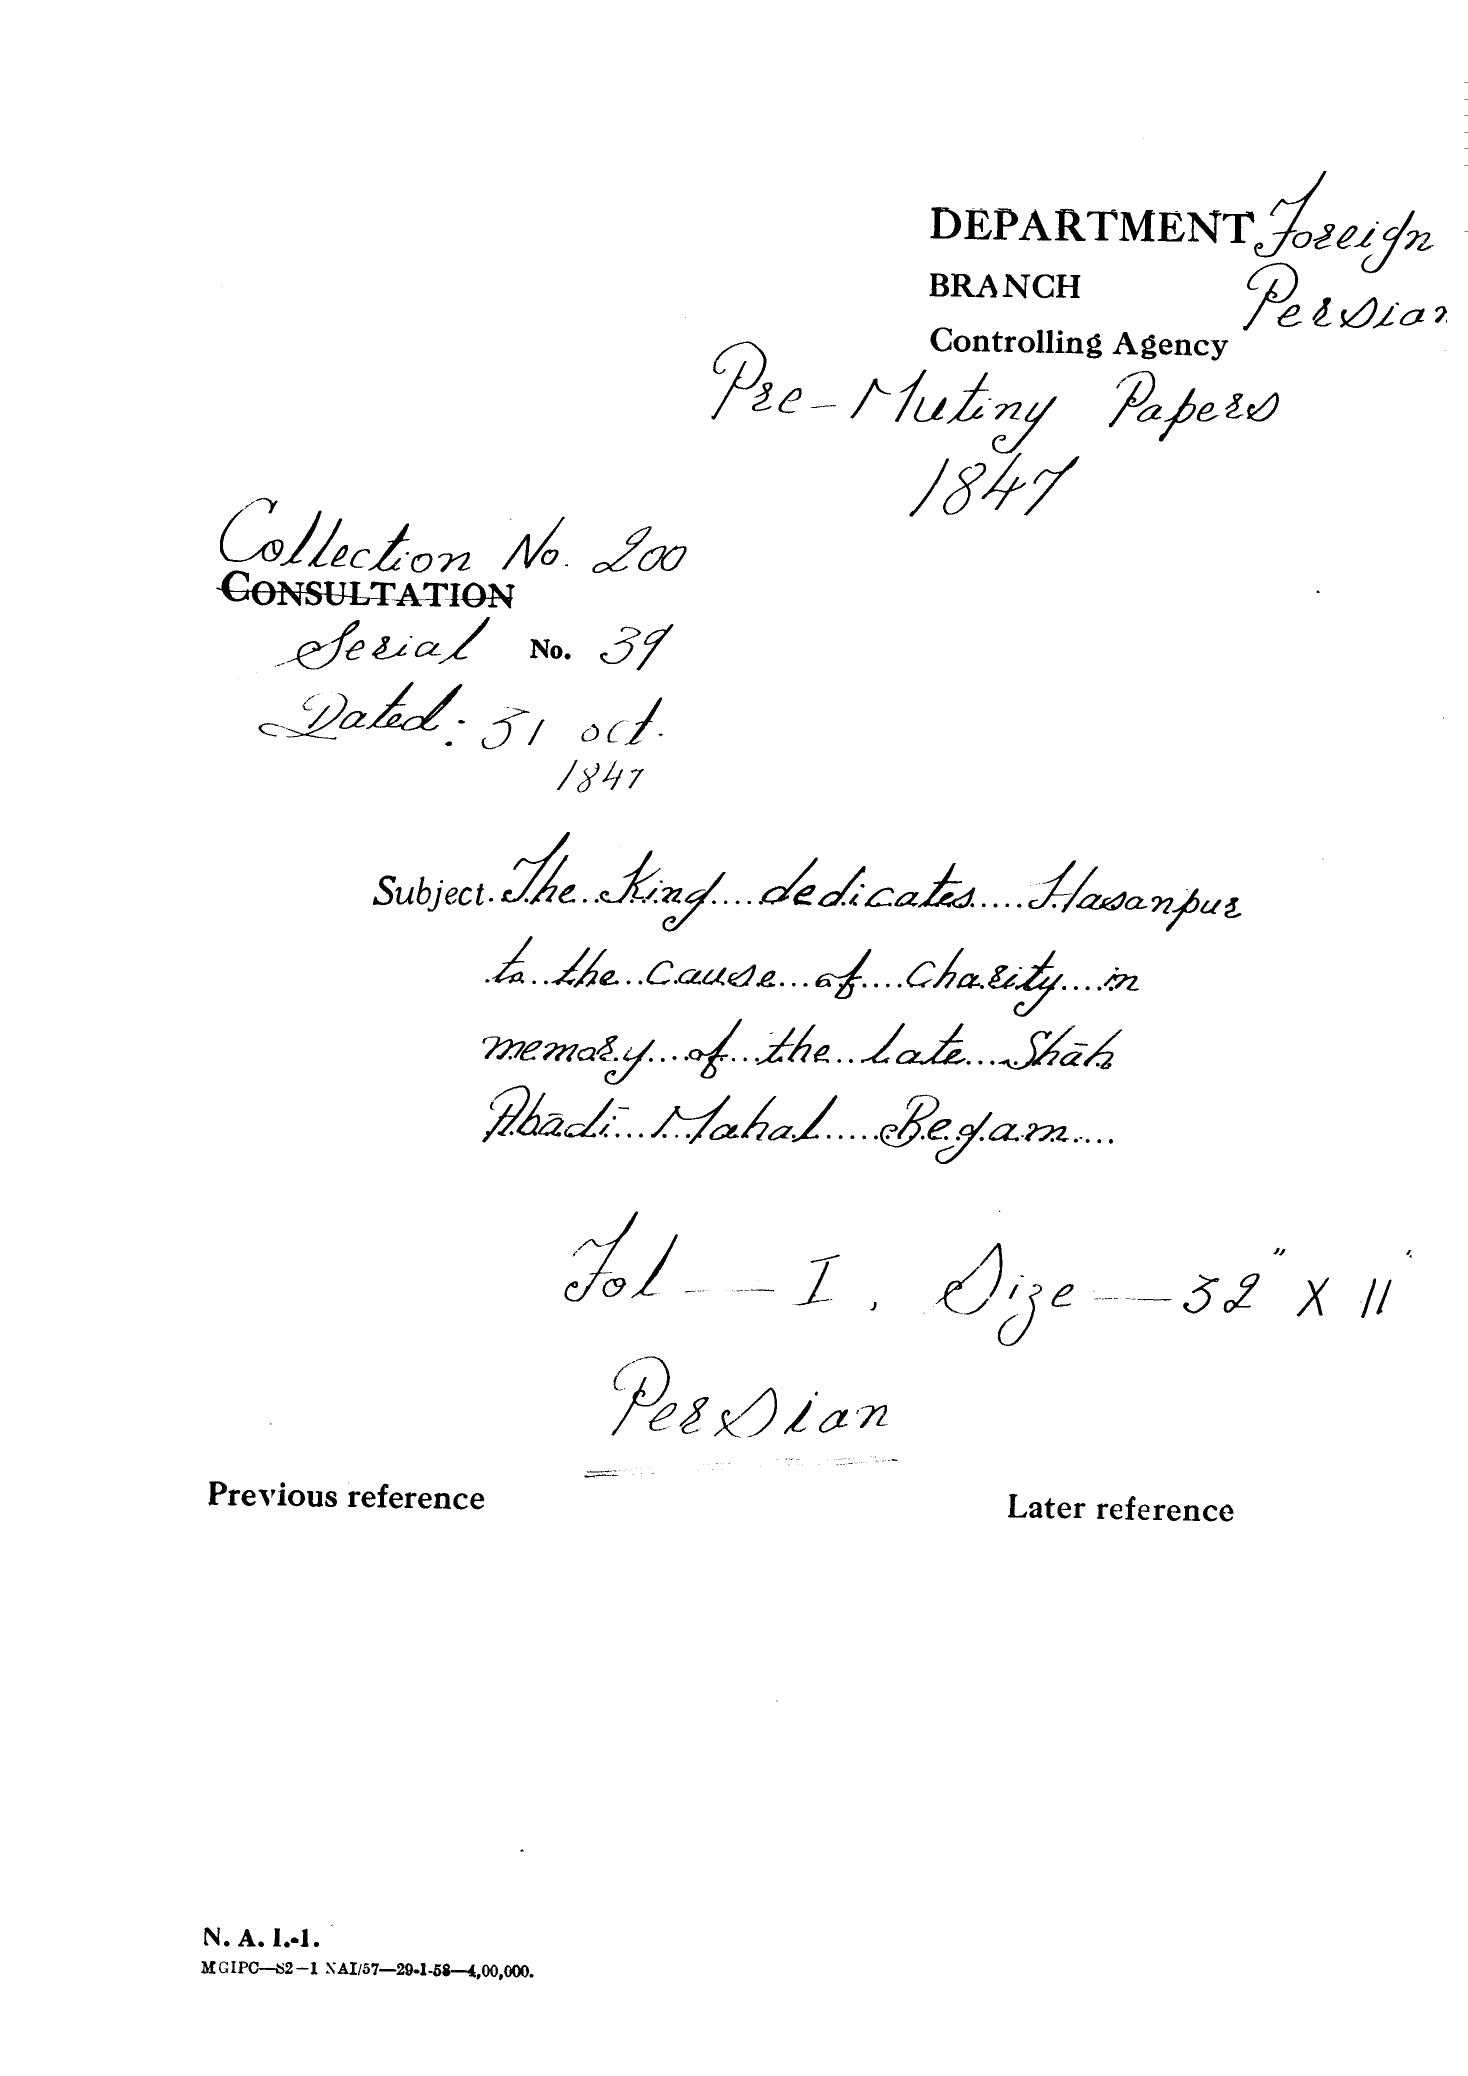 DEPARTMENT Foreign
BRANCH Persian
Controlling Agency
Pre-Mutiny Papers
1847
Collection No. 200
CONSULTATION
Serial No. 39
Dated: 31 oct.
1847
Subject. The King dedicates Hasanpur
to the cause of charity in
memory of the late Shāh
Abādī Mahal Begam
Fol — I, Size — 32" X 11"
Persian
Previous reference
Later reference
N. A. I.-1.
MGIPC—S2—1 NAI/57—29-1-58—4,00,000.